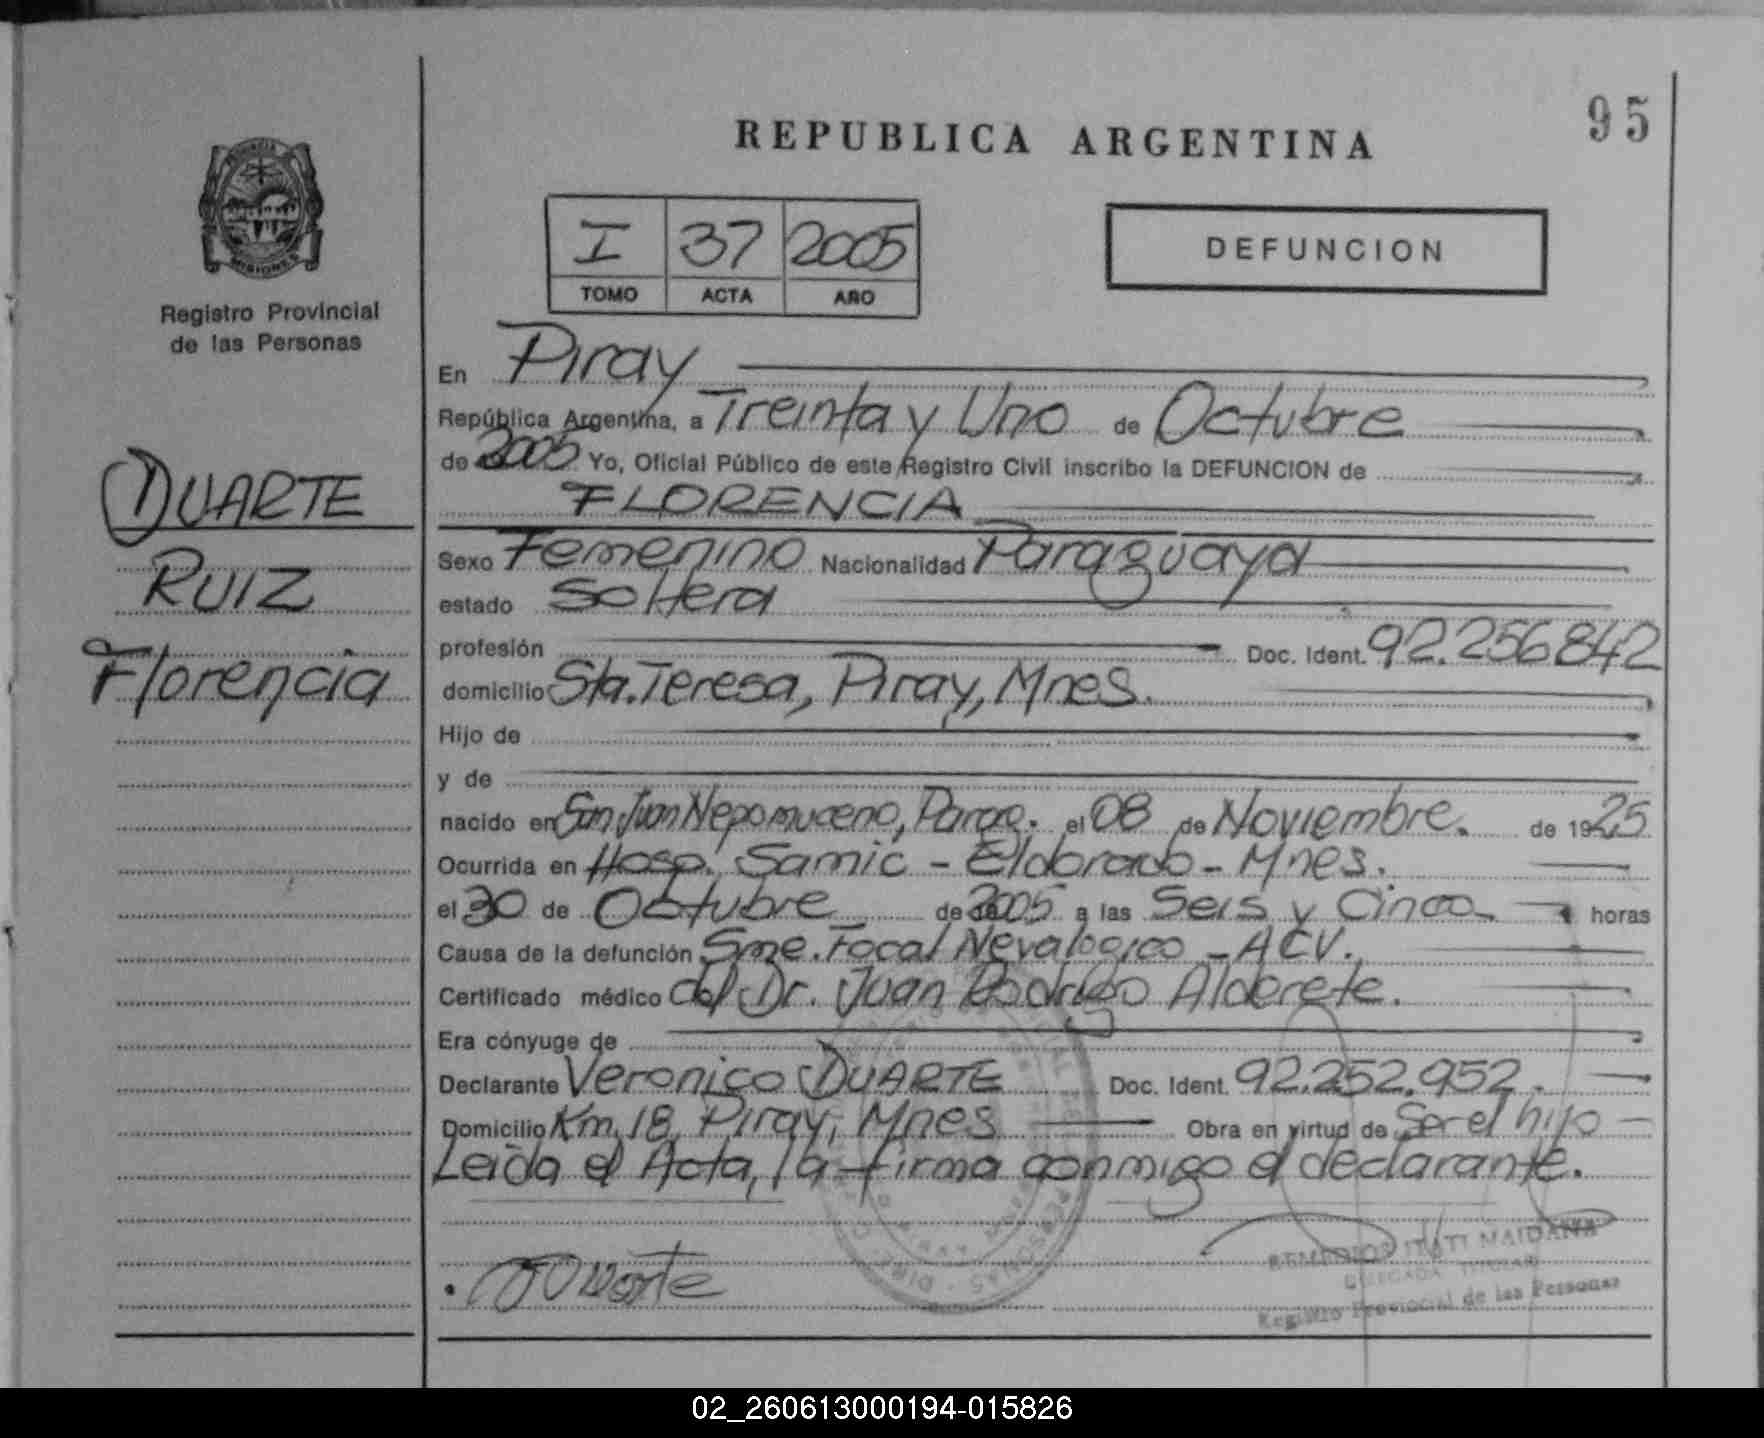 95
REPUBLICA ARGENTINA
PROVINCIA
MISIONES
Registro Provincial
de las Personas
I 37 2005
TOMO ACTA AÑO
DEFUNCION
DUARTE
RUIZ
Florencia
En Piray
República Argentina, a Treinta y Uno de Octubre
de 2005 Yo, Oficial Público de este Registro Civil inscribo la DEFUNCION de
FLORENCIA
Sexo Femenino Nacionalidad Paraguaya
estado Soltera
profesión Doc. Ident. 92.256842
domicilio Sta. Teresa, Piray, Mnes.
Hijo de
y de
nacido en San Juan Nepomuceno, Pargo. el 08 de Noviembre. de 1925
Ocurrida en Hosp. Samic - Eldorado - Mnes.
el 30 de Octubre de 2005 a las Seis y Cinco horas
Causa de la defunción Sme. Focal Nevalogico - ACV.
Certificado médico del Dr. Juan Rodrigo Alderete.
Era cónyuge de
Declarante Veronico DUARTE Doc. Ident. 92.252.952.
Domicilio Km 18, Piray, Mnes Obra en virtud de Ser el hijo
Leída el Acta, la firma conmigo el declarante.
Duarte
REMEDIOS ITATI MAIDANA
DELEGADA TITULAR
Registro Provincial de las Personas
02_260613000194-015826